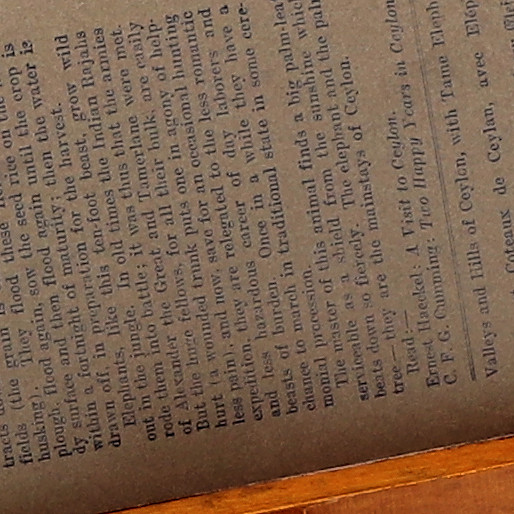 tracts grain is these
fields (the They flood, sow the seed rice on the
husking). flood again, flood again until the crop is
plough, and then of maturity; then the water is
dy surface fortnight of maturity; harvest.
within a in preparation for the grow wild
drawn off, ten-foot beast,
Elephants, like this. In old times the Indian Rajahs
out in the jungle. it was thus that the armies
rode them into battle; and Tamerlane were met.
of Alexander the Great for all their bulk, are easily
But the huge fellows, puts one in agony of help-
hurt (a wounded trunk save for an occasional hunting
less pain), and now, relegated to the less romantic
expedition, they are of day laborers and
less hazardous career while they have a
and of burden. Once in a state in some cere-
beasts to march in traditional
chance procession.
monial master of this animal finds a big palm-leaf
The as a shield from the sunshine which
serviceable so fiercely. The elephant and the palm
beats down are the mainstays of Ceylon.
tree—they
Read:—
Ernest Haeckel: A Visit to Ceylon.
C. F. G. Cumming: Two Happy Years in Ceylon
Valleys and Hills of Ceylon, with Tame Eleph
Coteaux de Ceylan, avec Elep